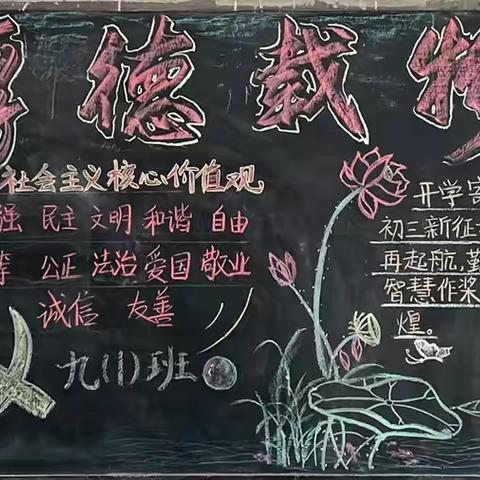 厚德载物
社会主义核心价值观
强 民主 文明 和谐 自由
等 公正 法治 爱国 敬业
诚信 友善
九(1)班
开学寄
初三新征
再起航,勤
智慧作桨
煌。